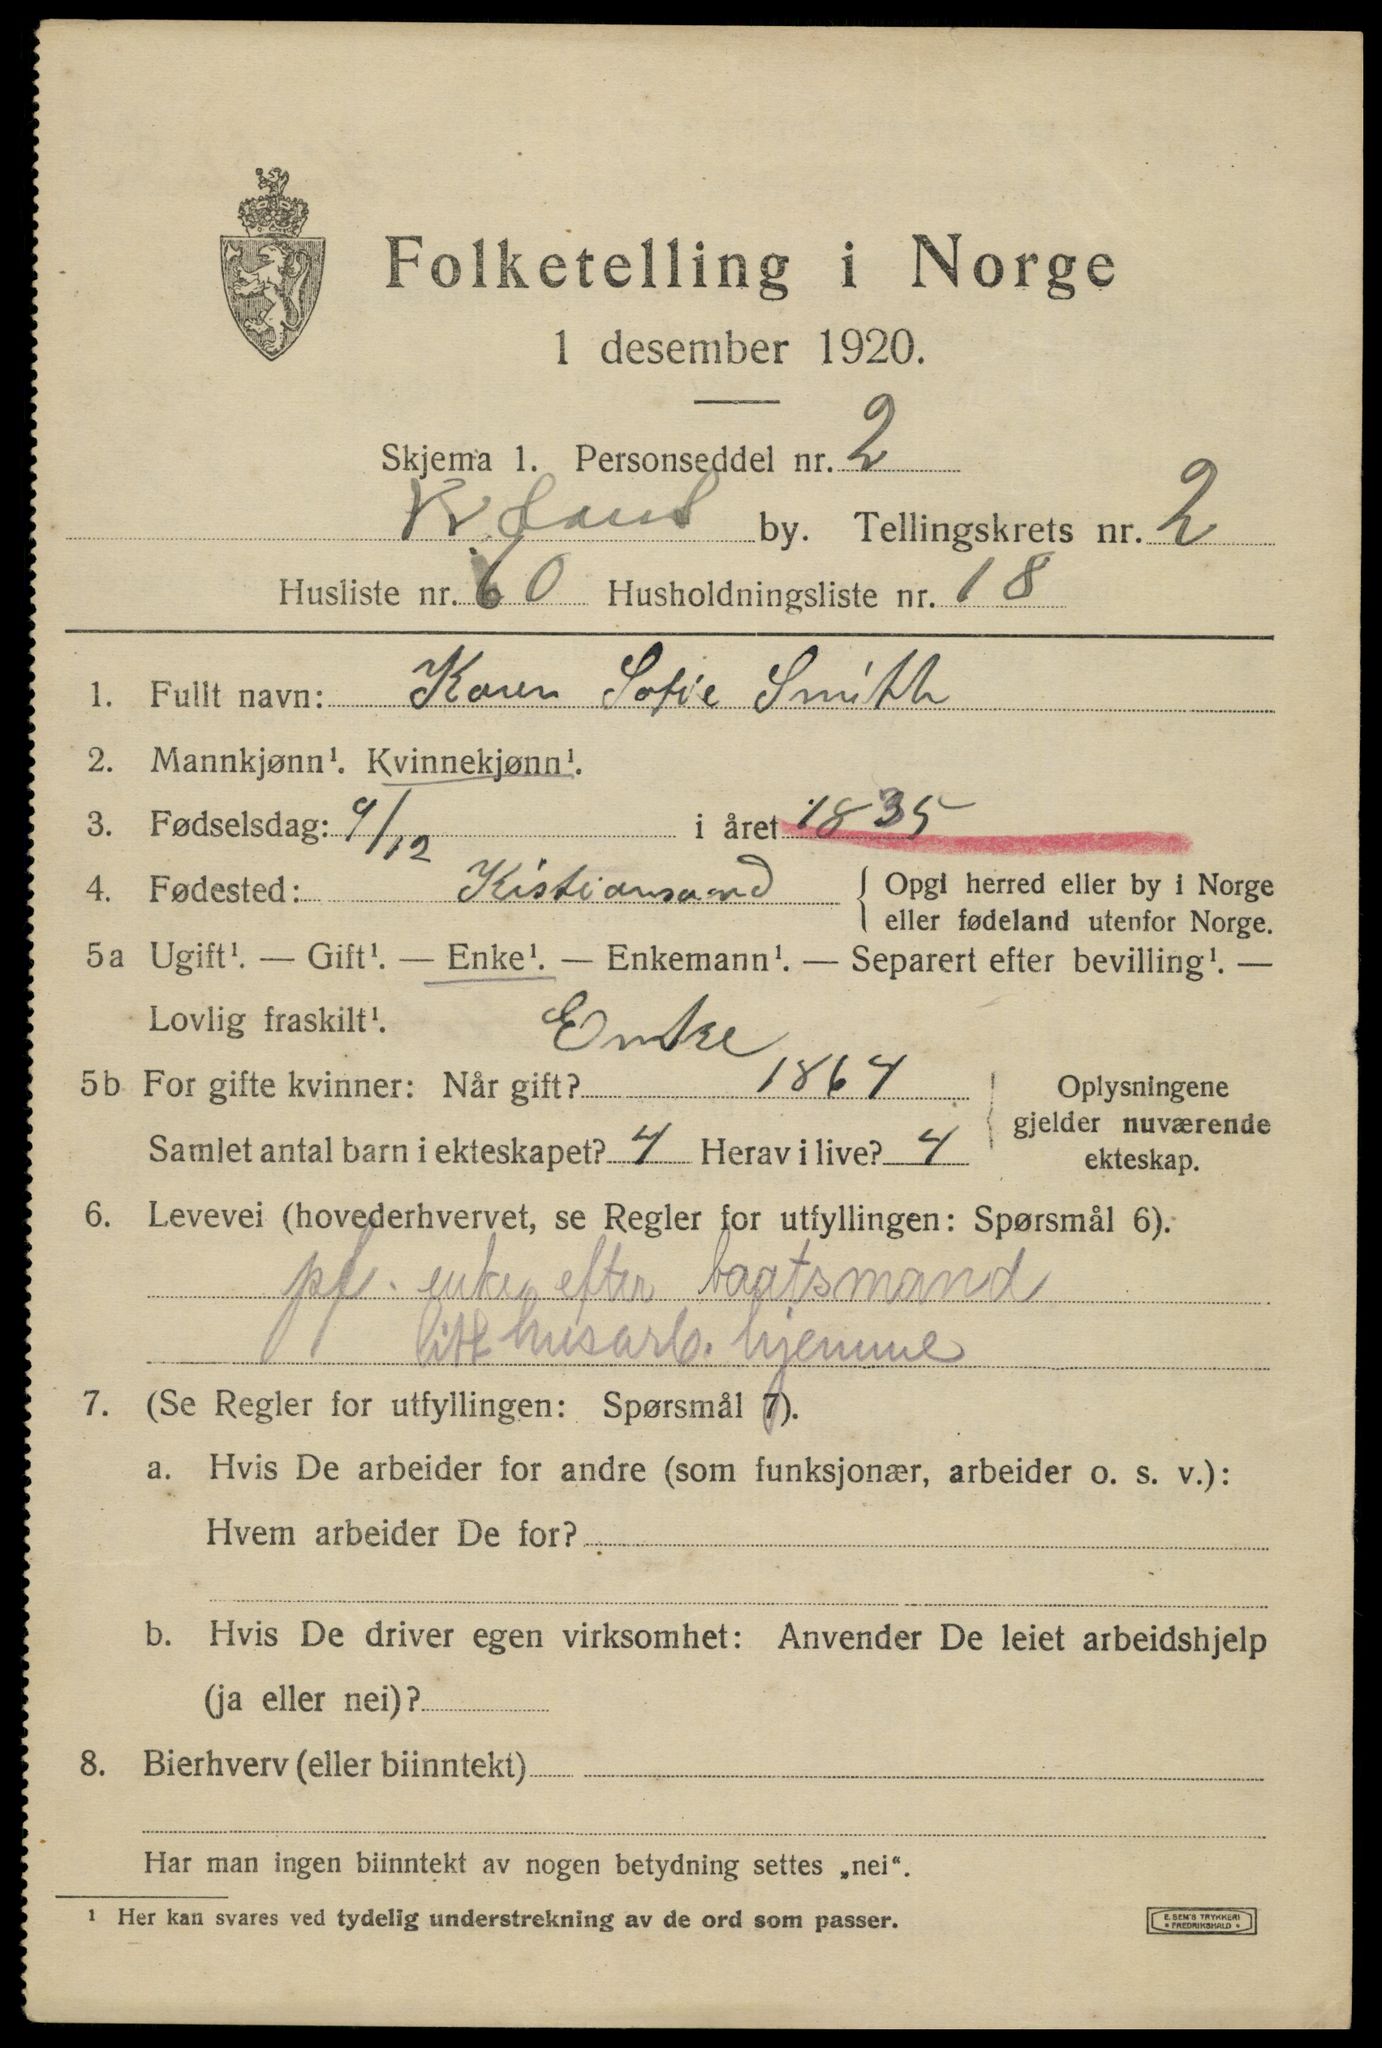 Folketelling i Norge
1 desember 1920.
Skjema 1. Personseddel nr. 2
Kr.sand by. Tellingskrets nr. 2
Husliste nr. 60 Husholdningsliste nr. 18
1. Fullt navn: Karen Sofie Smith
2. Mannkjønn¹. Kvinnekjønn¹.
3. Fødselsdag: 9/12 i året 1835
4. Fødested: Kistiansand { Opgi herred eller by i Norge
eller fødeland utenfor Norge.
5a Ugift¹. — Gift¹. — Enke¹. — Enkemann¹. — Separert efter bevilling¹. —
Lovlig fraskilt¹. Enke
5b For gifte kvinner: Når gift? 1864 { Oplysningene
gjelder nuværende
Samlet antal barn i ekteskapet? 4 Herav i live? 4 ekteskap.
6. Levevei (hovederhvervet, se Regler for utfyllingen: Spørsmål 6).
pf. enke efter baatsmand
litt husarb. hjemme
7. (Se Regler for utfyllingen: Spørsmål 7).
a. Hvis De arbeider for andre (som funksjonær, arbeider o. s. v.):
Hvem arbeider De for?
b. Hvis De driver egen virksomhet: Anvender De leiet arbeidshjelp
(ja eller nei)?
8. Bierhverv (eller biinntekt)
Har man ingen biinntekt av nogen betydning settes „nei“.
¹ Her kan svares ved tydelig understrekning av de ord som passer.
E. SEM'S TRYKKERI
• FREDRIKSHALD •